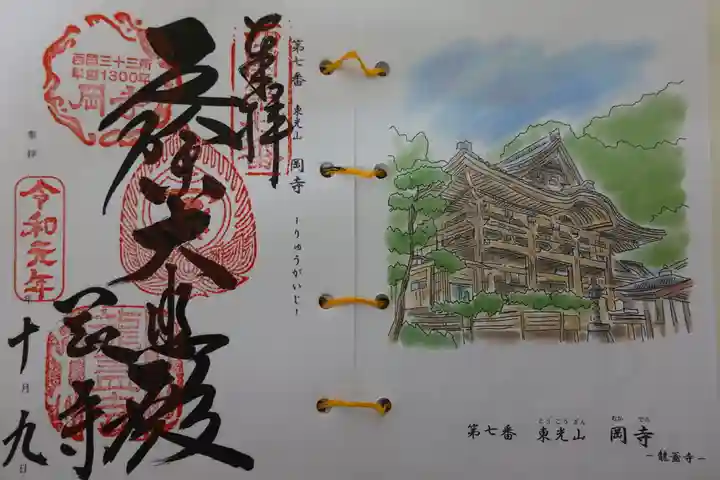 奉拝
第七番 東光山 岡寺
ーりゅうがいじー
西国三十三所
草創1300年
岡寺
奉拝
令和元年
十月九日
大悲殿
岡寺
第七番 東光山 岡寺
とうこうざん おか でら
ー龍蓋寺ー